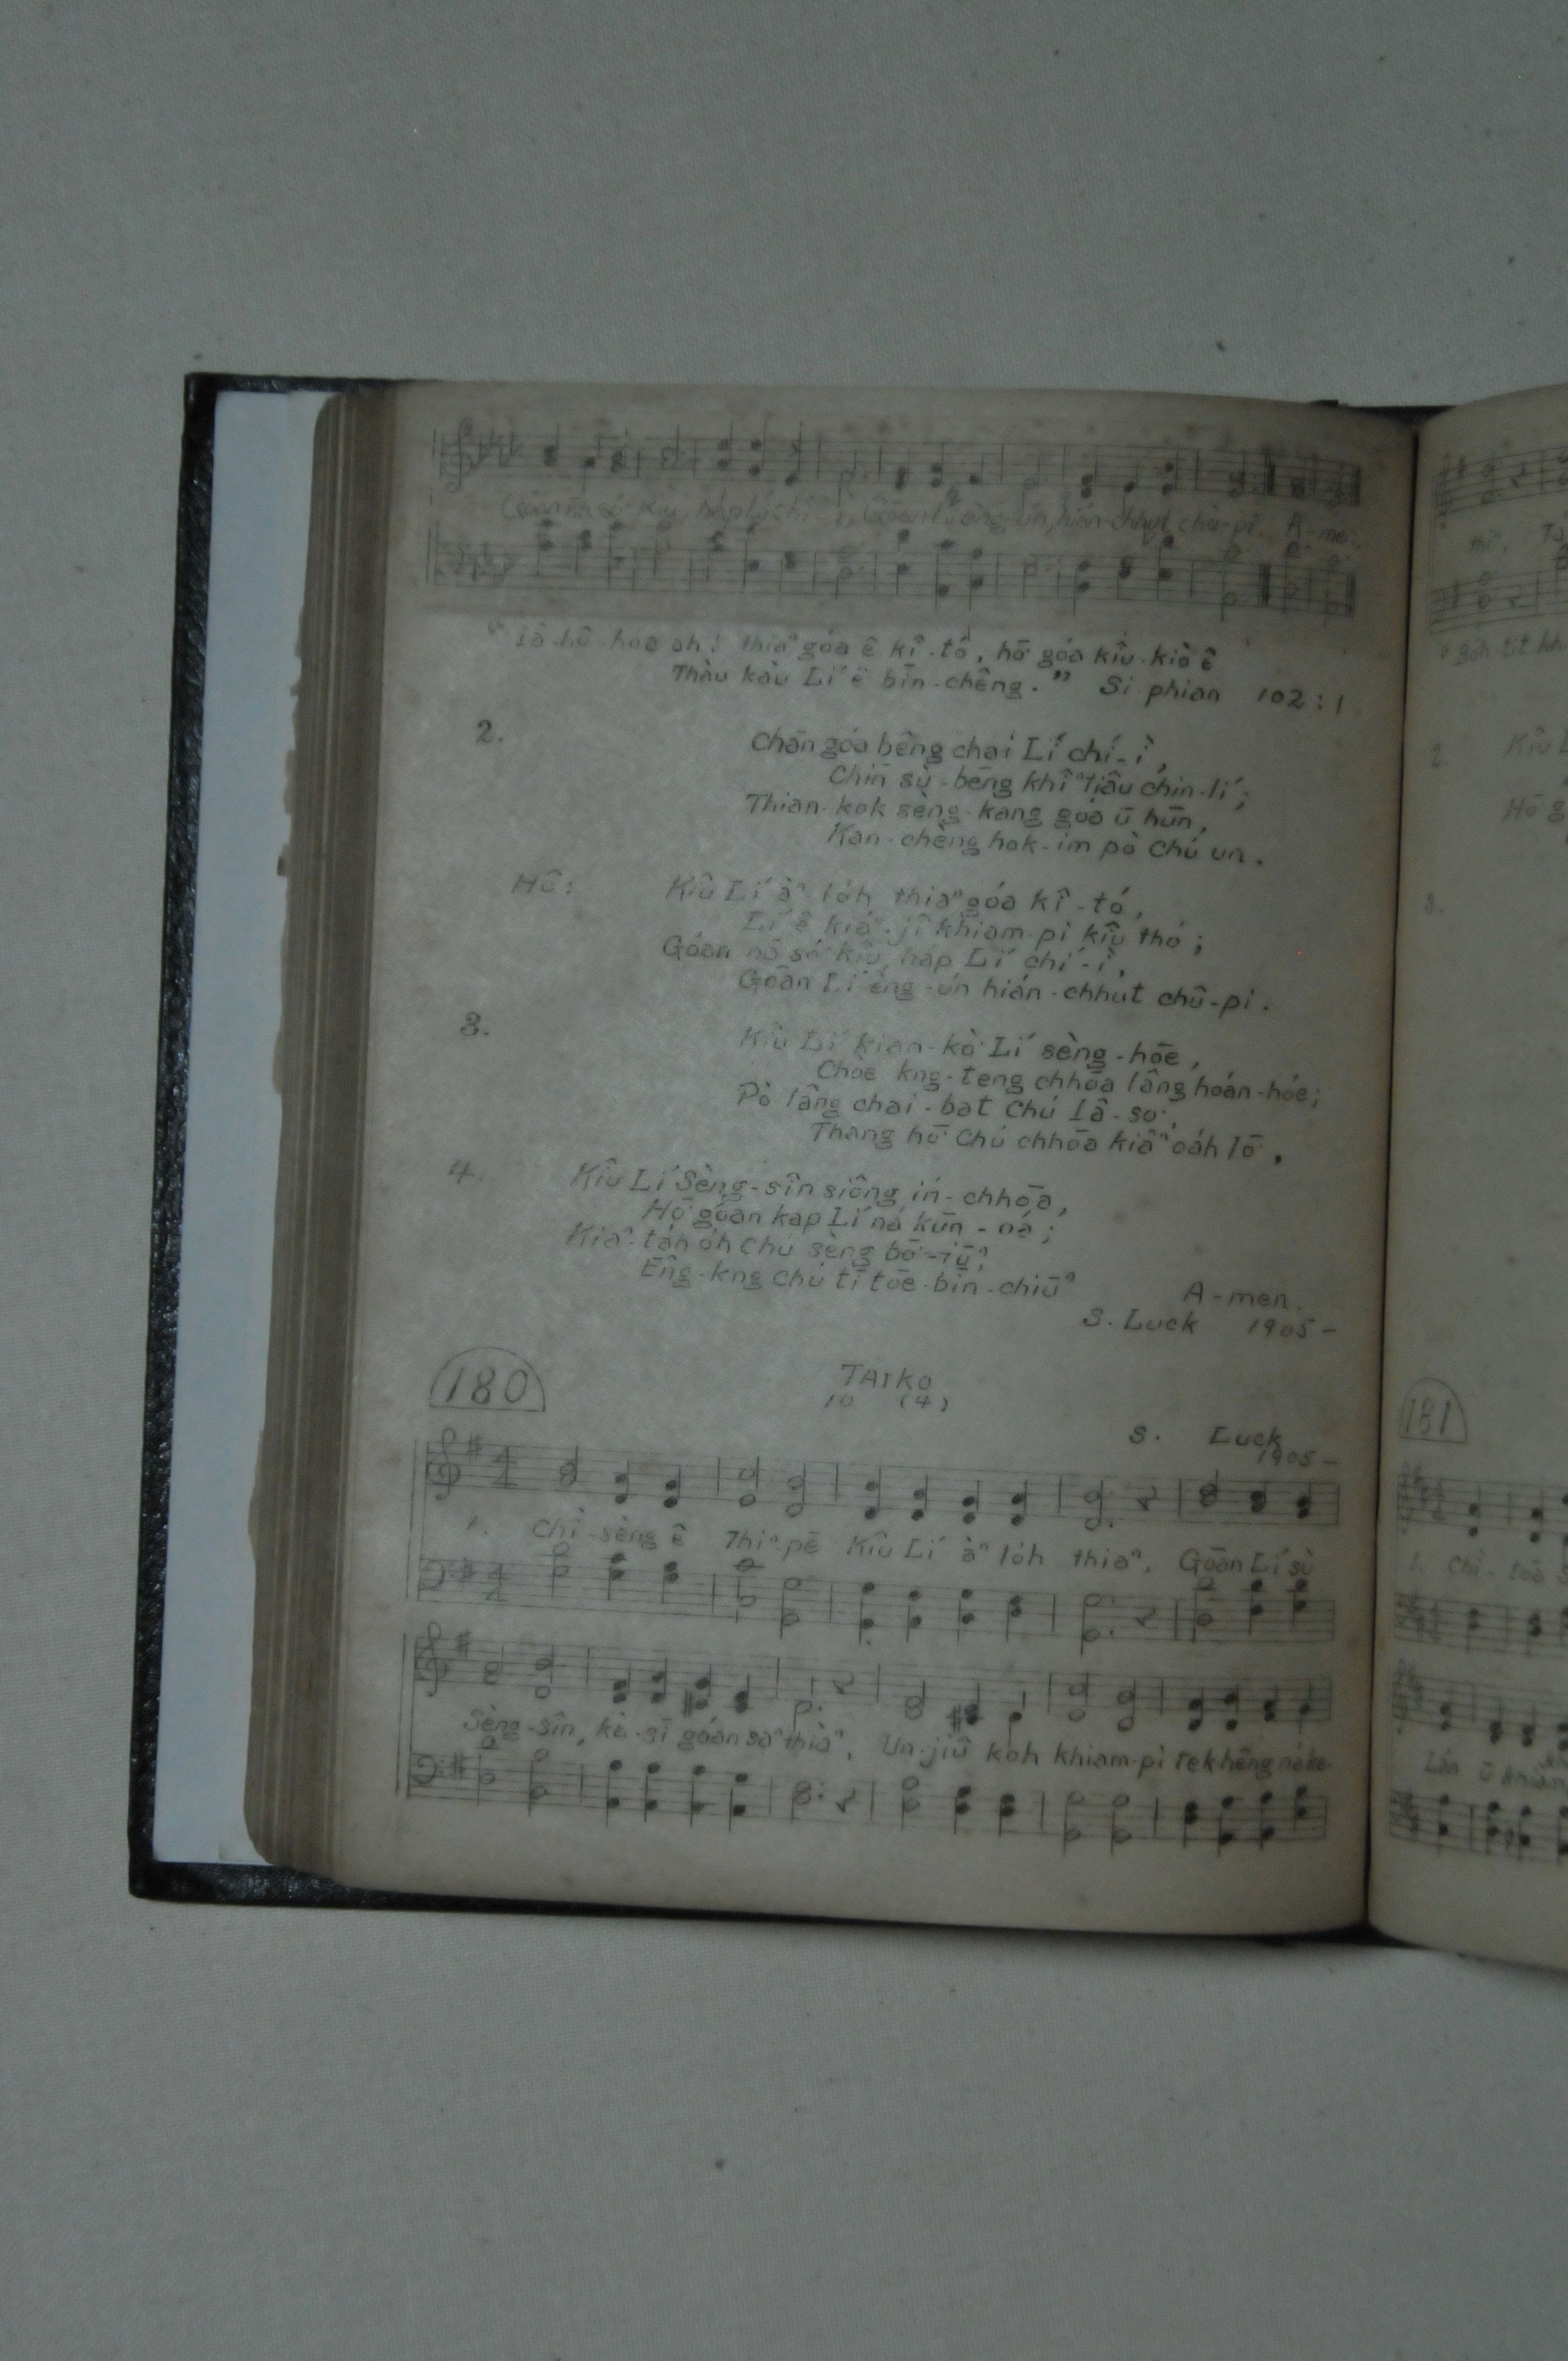 Goān nā só͘ kiû, ha̍p Lí chí-ì, Goān Lí èng-ún hián-chhut chû-pi. A-men.
"Iâ-hô-hoa ah! thiaⁿ góa ê kî-tó, hō͘ góa kiû-kiò ê
Thàu kàu Lí ê bīn-chêng." Si phian 102:1
2. Chān góa bêng chai Lí chí-ì,
Chīn sù-bēng khîⁿ tiâu chin-lí;
Thian-kok sèng-kang góa ū hūn,
Kan-chèng hok-im pò Chú un.
Hô: Kiû Lí àⁿ lo̍h thiaⁿ góa kî-tó,
Lí ê kiáⁿ-jî khiam-pi kiû thó;
Góan nā só͘ kiû, ha̍p Lí chí-ì,
Goān Lí èng-ún hián-chhut chû-pi.
3. Kiû Lí kian-kò͘ Lí sèng-hōe,
Chòe kng-teng chhōa lâng hoán-hóe;
Pò lâng chai-bat Chú Iâ-so͘,
Thang hō͘ Chú chhōa kiâⁿ oa̍h lō͘.
4. Kiû Lí Sèng-sîn siông ín-chhōa,
Hō͘ góan kap Lí ná kūn-oá;
Kiaⁿ-ta̍h o̍h Chú sèng bô͘-iūⁿ,
Êng-kng Chú tī tōe-bīn-chiūⁿ
A-men.
S. Luck 1905-
180 TAIko
10 (4)
S. Luck
1905-
1. Chì-sèng ê Thiⁿ-pē Kiû Lí àⁿ lo̍h thiaⁿ, Goān Lí sù
Sèng-sîn, kà-sī góan saⁿ thiàⁿ, Un-jiû koh khiam-pi tek-hēng ná ke-
181
1. Chì-toā
Lán ū
2. Kiû L
Hō͘ g
3.